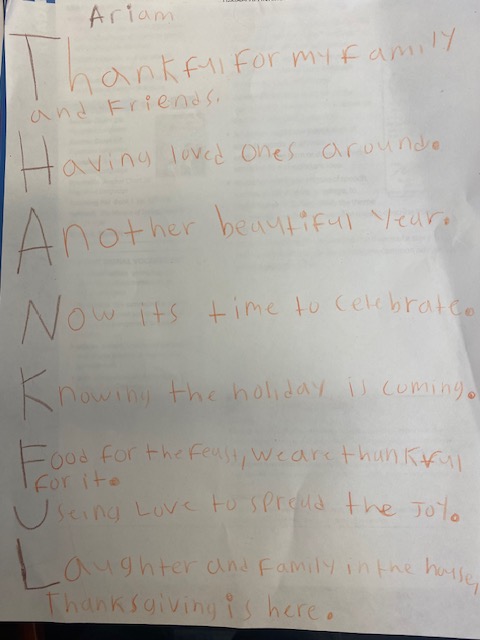 Ariam
Thankful for my family
and Friends.
Having loved ones around.
Another beautiful year.
Now its time to celebrate.
Knowing the holiday is coming.
Food for the Feast, we are thankful
for it.
Using Love to spread the Joy.
Laughter and Family in the house,
Thanksgiving is here.